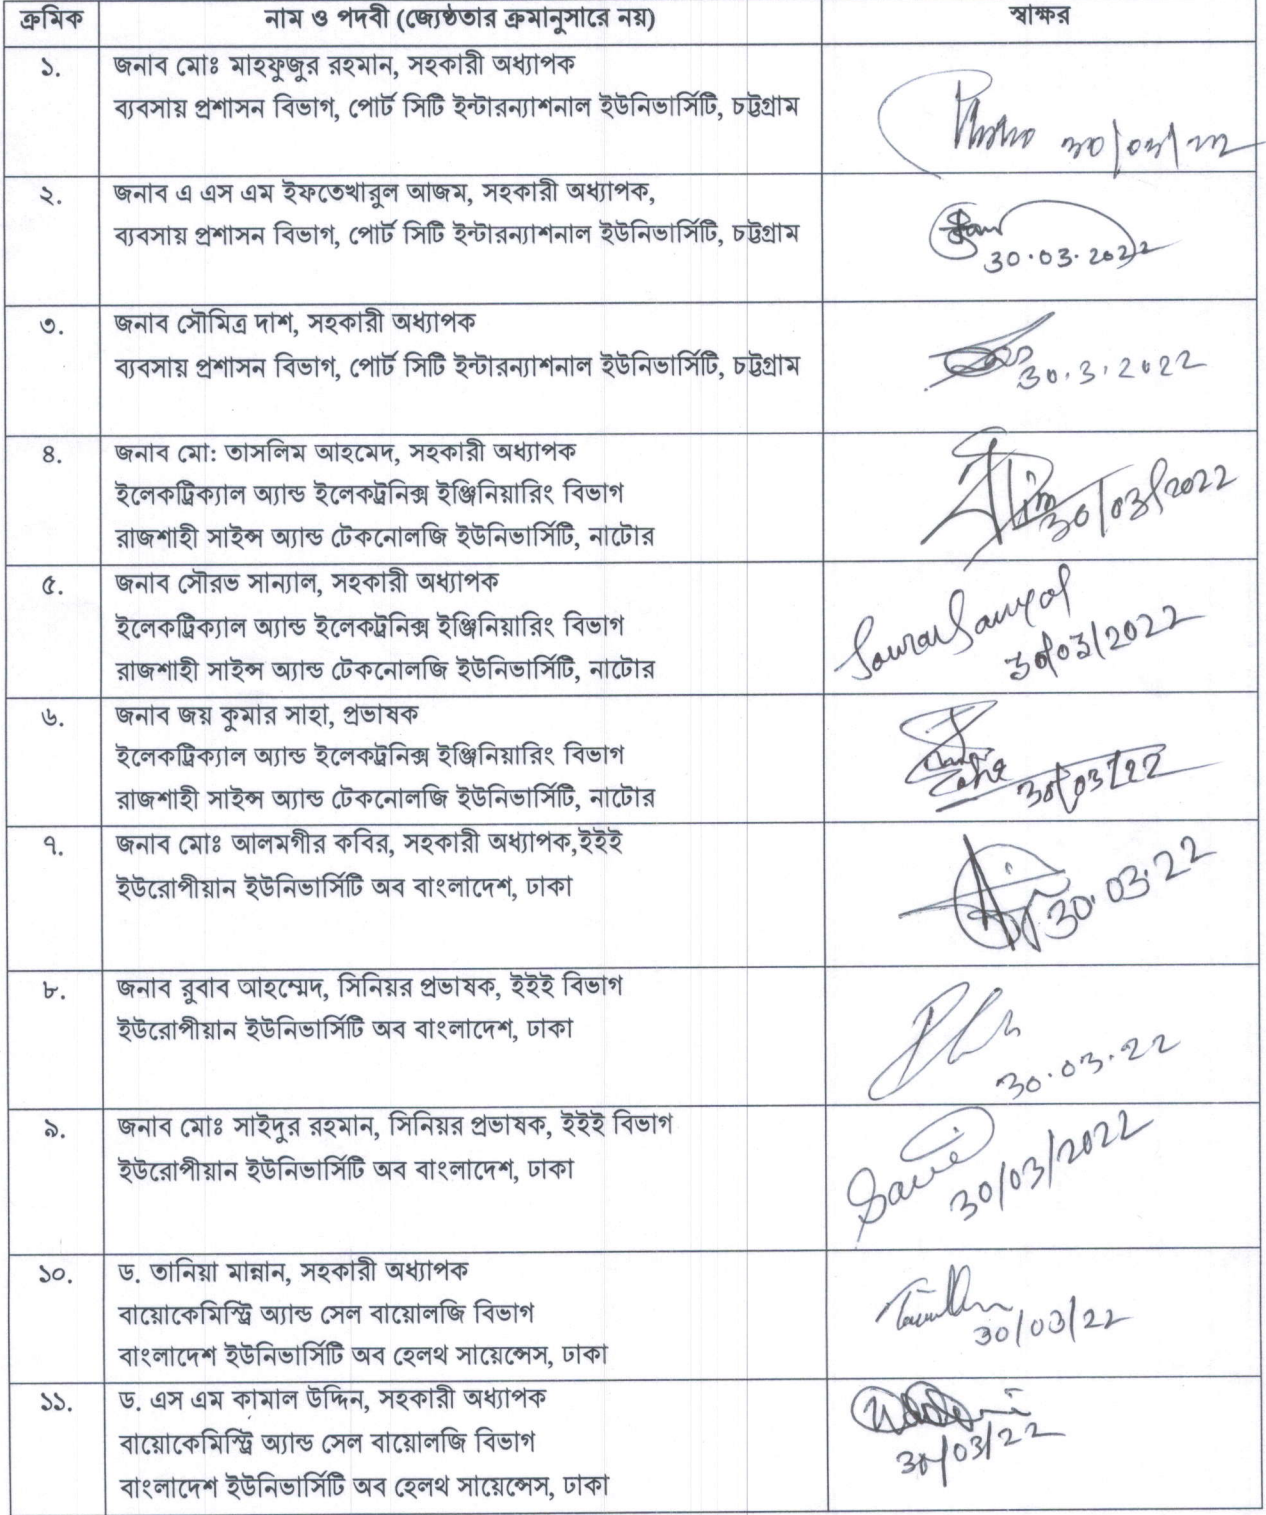 ক্রমিক নাম ও পদবী (জ্যেষ্ঠতার ক্রমানুসারে নয়) স্বাক্ষর
১. জনাব মোঃ মাহফুজুর রহমান, সহকারী অধ্যাপক
ব্যবসায় প্রশাসন বিভাগ, পোর্ট সিটি ইন্টারন্যাশনাল ইউনিভার্সিটি, চট্টগ্রাম
30/03/22
২. জনাব এ এস এম ইফতেখারুল আজম, সহকারী অধ্যাপক,
ব্যবসায় প্রশাসন বিভাগ, পোর্ট সিটি ইন্টারন্যাশনাল ইউনিভার্সিটি, চট্টগ্রাম
30.03.2022
৩. জনাব সৌমিত্র দাশ, সহকারী অধ্যাপক
ব্যবসায় প্রশাসন বিভাগ, পোর্ট সিটি ইন্টারন্যাশনাল ইউনিভার্সিটি, চট্টগ্রাম
30.3.2022
৪. জনাব মো: তাসলিম আহমেদ, সহকারী অধ্যাপক
ইলেকট্রিক্যাল অ্যান্ড ইলেকট্রনিক্স ইঞ্জিনিয়ারিং বিভাগ
30/03/2022
রাজশাহী সাইন্স অ্যান্ড টেকনোলজি ইউনিভার্সিটি, নাটোর
৫. জনাব সৌরভ সান্যাল, সহকারী অধ্যাপক
ইলেকট্রিক্যাল অ্যান্ড ইলেকট্রনিক্স ইঞ্জিনিয়ারিং বিভাগ
Sourav Sanyal
রাজশাহী সাইন্স অ্যান্ড টেকনোলজি ইউনিভার্সিটি, নাটোর
30/03/2022
৬. জনাব জয় কুমার সাহা, প্রভাষক
ইলেকট্রিক্যাল অ্যান্ড ইলেকট্রনিক্স ইঞ্জিনিয়ারিং বিভাগ
রাজশাহী সাইন্স অ্যান্ড টেকনোলজি ইউনিভার্সিটি, নাটোর
30/03/22
৭. জনাব মোঃ আলমগীর কবির, সহকারী অধ্যাপক,ইইই
ইউরোপীয়ান ইউনিভার্সিটি অব বাংলাদেশ, ঢাকা
30.03.22
৮. জনাব রুবাব আহম্মেদ, সিনিয়র প্রভাষক, ইইই বিভাগ
ইউরোপীয়ান ইউনিভার্সিটি অব বাংলাদেশ, ঢাকা
30.03.22
৯. জনাব মোঃ সাইদুর রহমান, সিনিয়র প্রভাষক, ইইই বিভাগ
ইউরোপীয়ান ইউনিভার্সিটি অব বাংলাদেশ, ঢাকা
30/03/2022
১০. ড. তানিয়া মান্নান, সহকারী অধ্যাপক
বায়োকেমিস্ট্রি অ্যান্ড সেল বায়োলজি বিভাগ
30/03/22
বাংলাদেশ ইউনিভার্সিটি অব হেলথ সায়েন্সেস, ঢাকা
১১. ড. এস এম কামাল উদ্দিন, সহকারী অধ্যাপক
বায়োকেমিস্ট্রি অ্যান্ড সেল বায়োলজি বিভাগ
30/03/22
বাংলাদেশ ইউনিভার্সিটি অব হেলথ সায়েন্সেস, ঢাকা